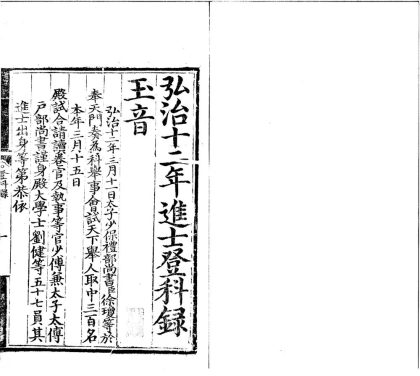 弘治十二年進士登科録
玉音
弘治十二年三月十一日太子少保禮部尚書臣徐瓊等於
奉天門奏為科舉事會試天下舉人取中三百名
本年三月十五日
殿試合請讀卷官及執事等官少傅兼太子太傅
戶部尚書謹身殿大學士劉健等五十七員其
進士出身等第恭依